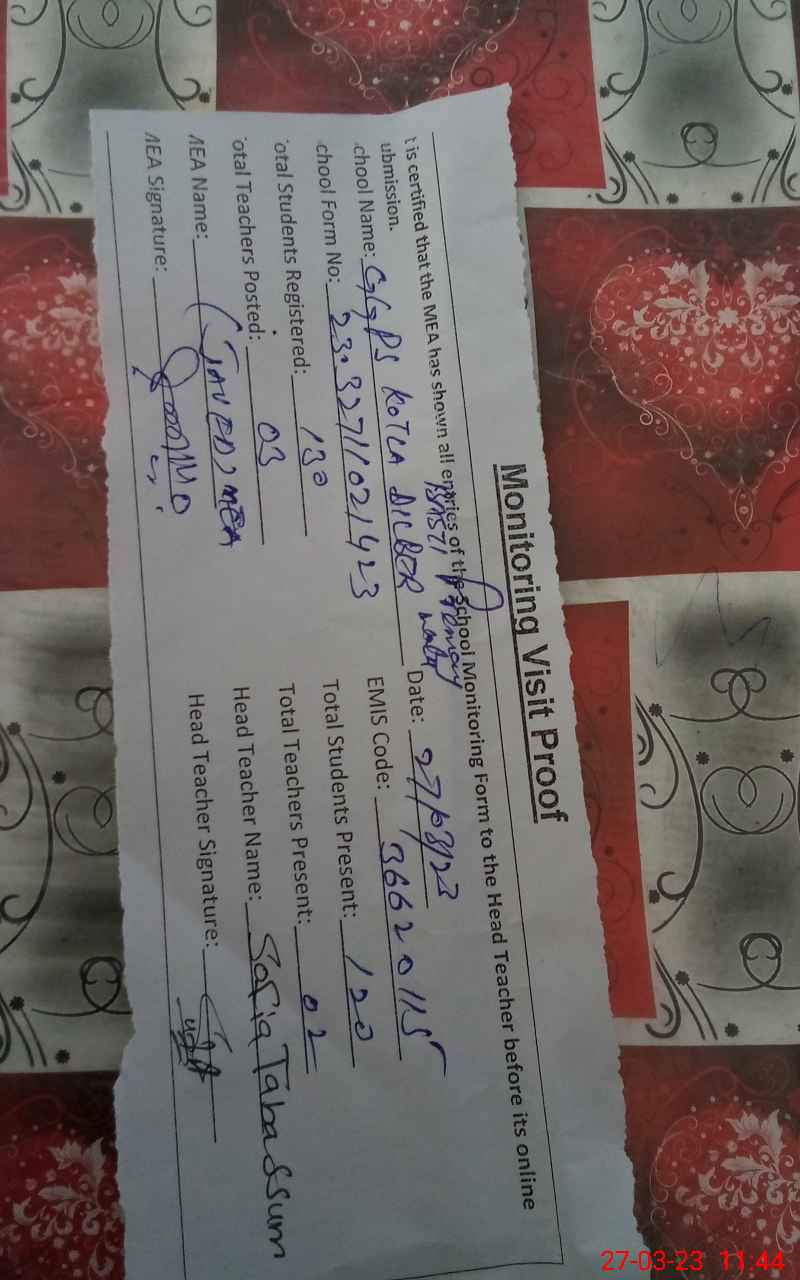 Monitoring Visit Proof
t is certified that the MEA has shown all entries of the School Monitoring Form to the Head Teacher before its online
ubmission.
BASTI
chool Name: GGPS KOTLA DILBER Date: 27/03/23
chool Form No: 23.32711021423 EMIS Code: 36620115
otal Students Registered: 130 Total Students Present: 120
otal Teachers Posted: 03 Total Teachers Present: 02
MEA Name: (JAVED) MEA Head Teacher Name: Sofia Tabassum
MEA Signature: Head Teacher Signature:
27-03-23 11:44